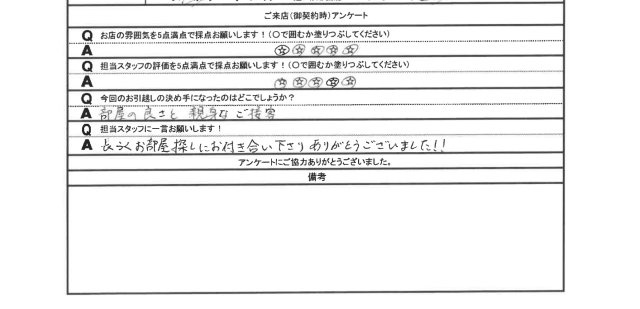 ご来店(御契約時)アンケート
Q お店の雰囲気を5点満点で採点お願いします！(〇で囲むか塗りつぶしてください)
A ☆☆☆☆☆
Q 担当スタッフの評価を5点満点で採点お願いします！(〇で囲むか塗りつぶしてください)
A ☆☆☆☆☆
Q 今回のお引越しの決め手になったのはどこでしょうか？
A 部屋の良さと 親身なご接客
Q 担当スタッフに一言お願いします！
A 長らくお部屋探しにお付き合い下さりありがとうございました!!
アンケートにご協力ありがとうございました。
備考